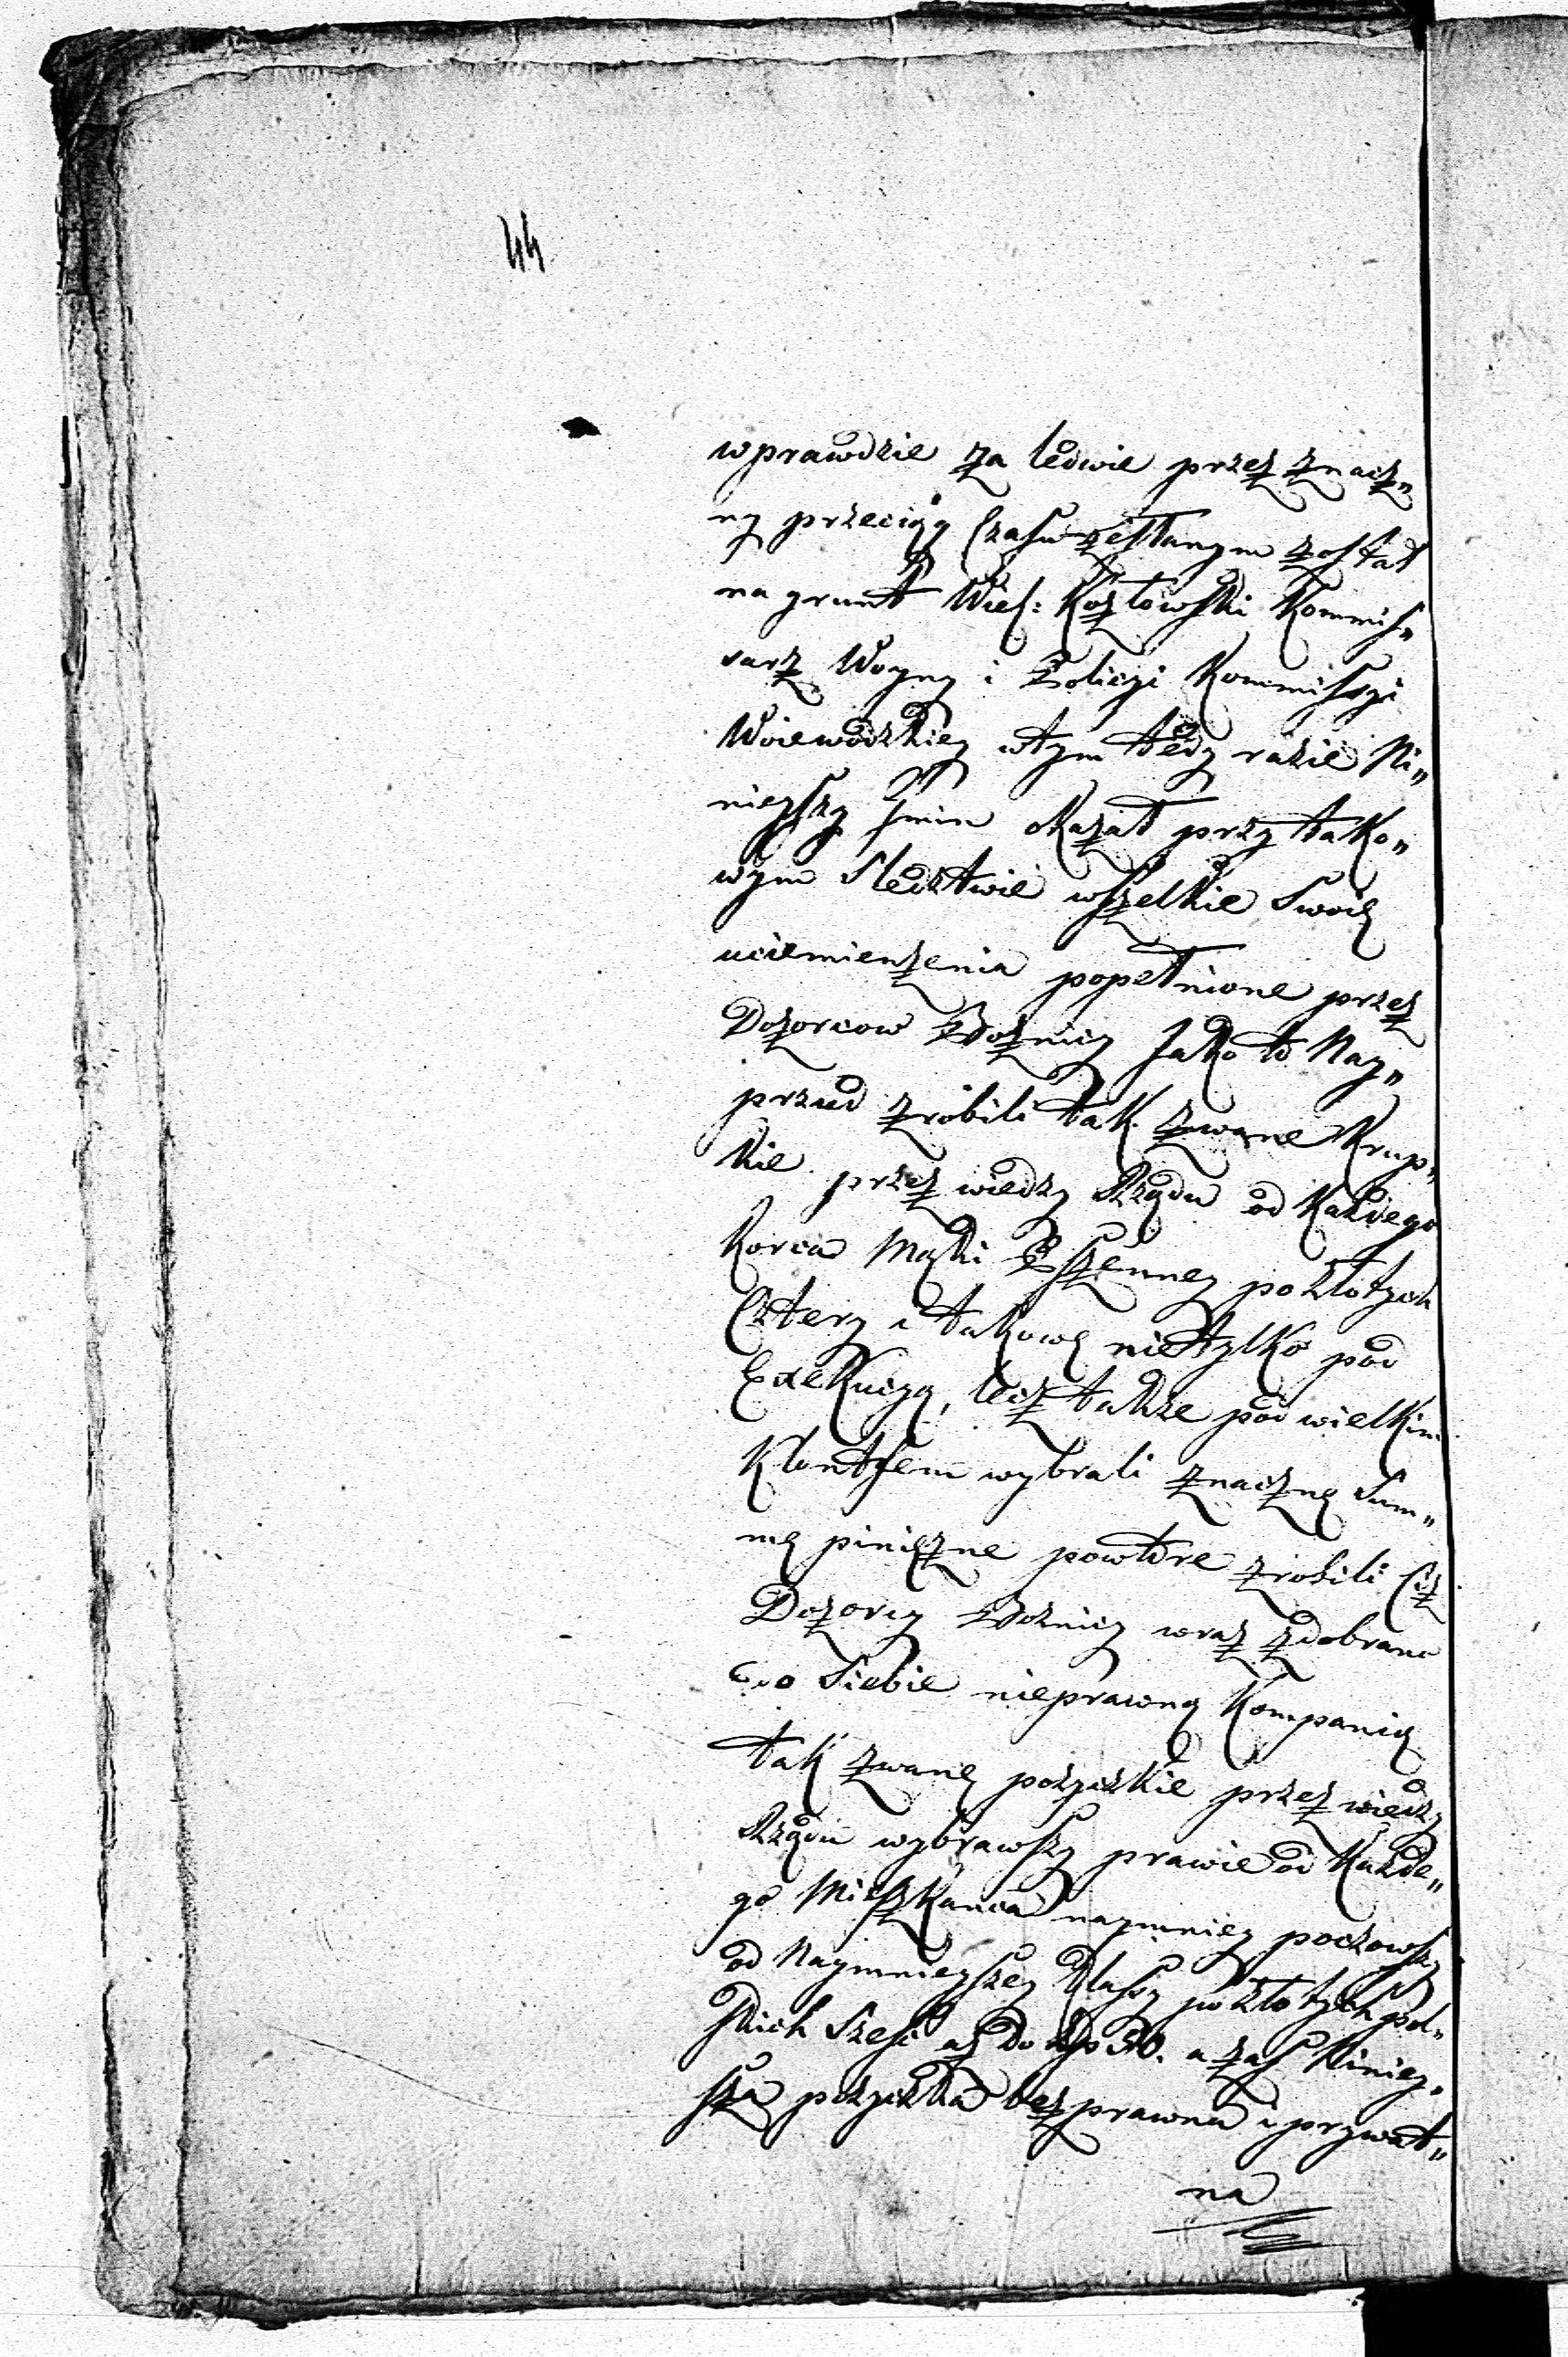 44
wprawdzie za ledwie przez znacz„
ny przeciąg Czasu zesłanym został
na grunt Wiel: Kozłowski Kommis„
sarz Woyny i Policyi Kommissyi
Woiewodzkiey wtym tedy razie Ni„
nieyszy Gmin okazał przy tako„
wym Sledztwie wszelkie Swoie
uciemienżenia popełnione przez
Dozorcow Bożnicy Jako to Nay„
przud zrobili tak zwane Krup„
kie przez wiedzy Rządu od Każdego
Korca Mąki Pszenney po złotych
Cztery i takowe nietylko pod
Exekucyą, lecz także pod wielkim
Klontfem wybrali znaczne Sum„
me pinięzne powtore zrobili Ciz
Dozorcy Bożnicy wraz zdobrane
do Siebie nieprawną Kompanią
tak zwane pożyczkie przez wiedzy
Rządu wybrawszy prawie od Każde„
go Mieszkanca naymniey poczowszy
od Naymnieyszey Klassy po złotych pol„
skich Szesc az do Zł 50. a zas Niniey„
sza pożyczka bezprawna i prywat„
na